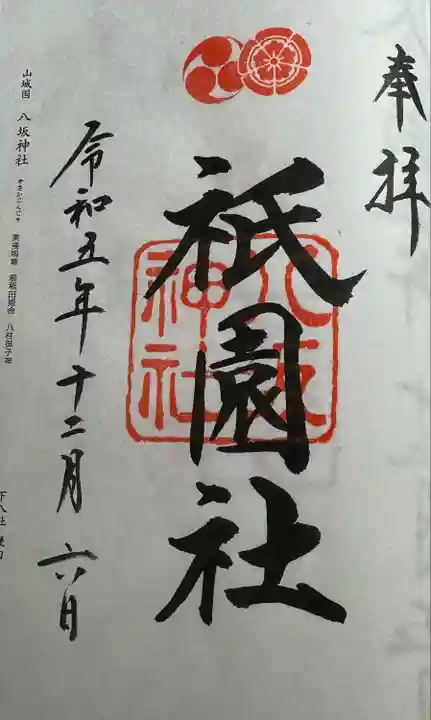 奉拝
祇園社
八坂神社
令和五年十二月六日
山城国 八坂神社 やさかじんじゃ 素戔嗚尊 櫛稲田姫命 八柱御子神